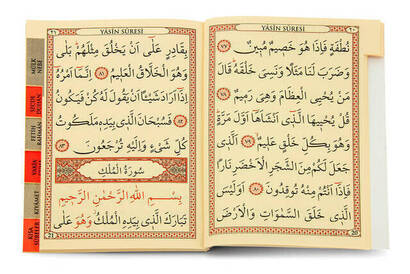 YÂSİN SÛRESİ
نُطْفَةٍ فَاِذَا هُوَ خَصِيمٌ مُبِينٌ ﴿٧٧﴾
وَضَرَبَ لَنَا مَثَلًا وَنَسِيَ خَلْقَهُ قَالَ
مَنْ يُحْيِي الْعِظَامَ وَهِيَ رَمِيمٌ ﴿٧٨﴾
قُلْ يُحْيِيهَا الَّذِي اَنْشَاَهَا اَوَّلَ مَرَّةٍ
وَهُوَ بِكُلِّ خَلْقٍ عَلِيمٌ ﴿٧٩﴾ اَلَّذِي
جَعَلَ لَكُمْ مِنَ الشَّجَرِ الْاَخْضَرِ نَارًا
فَاِذَا اَنْتُمْ مِنْهُ تُوقِدُونَ ﴿٨٠﴾ اَوَلَيْسَ
الَّذِي خَلَقَ السَّمٰوَاتِ وَالْاَرْضَ
YÂSİN SÛRESİ
بِقَادِرٍ عَلٰى اَنْ يَخْلُقَ مِثْلَهُمْ بَلٰى
وَهُوَ الْخَلَّاقُ الْعَلِيمُ ﴿٨١﴾ اِنَّمَا اَمْرُهُ
اِذَا اَرَادَ شَيْئًا اَنْ يَقُولَ لَهُ كُنْ فَيَكُونُ
﴿٨٢﴾ فَسُبْحَانَ الَّذِي بِيَدِهِ مَلَكُوتُ
كُلِّ شَيْءٍ وَاِلَيْهِ تُرْجَعُونَ ﴿٨٣﴾
سُورَةُ الْمُلْكِ
بِسْمِ اللّٰهِ الرَّحْمٰنِ الرَّحِيمِ
تَبَارَكَ الَّذِي بِيَدِهِ الْمُلْكُ وَهُوَ عَلٰى
MÜLK
NEBE
SECDE
DUHAN
FETİH
RAHMAN
YASİN
KIYAMET
KISA
SURELER